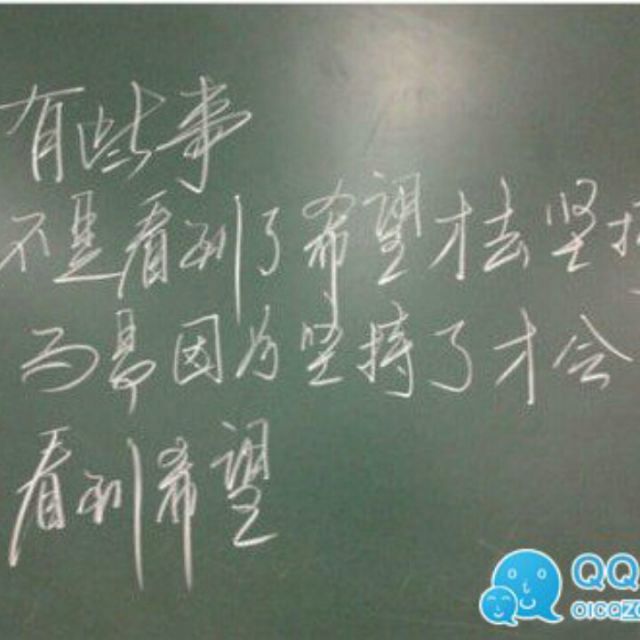 有些事
不是看到了希望才去坚持
而是因为坚持了才会
看到希望
QQ
OICQZO